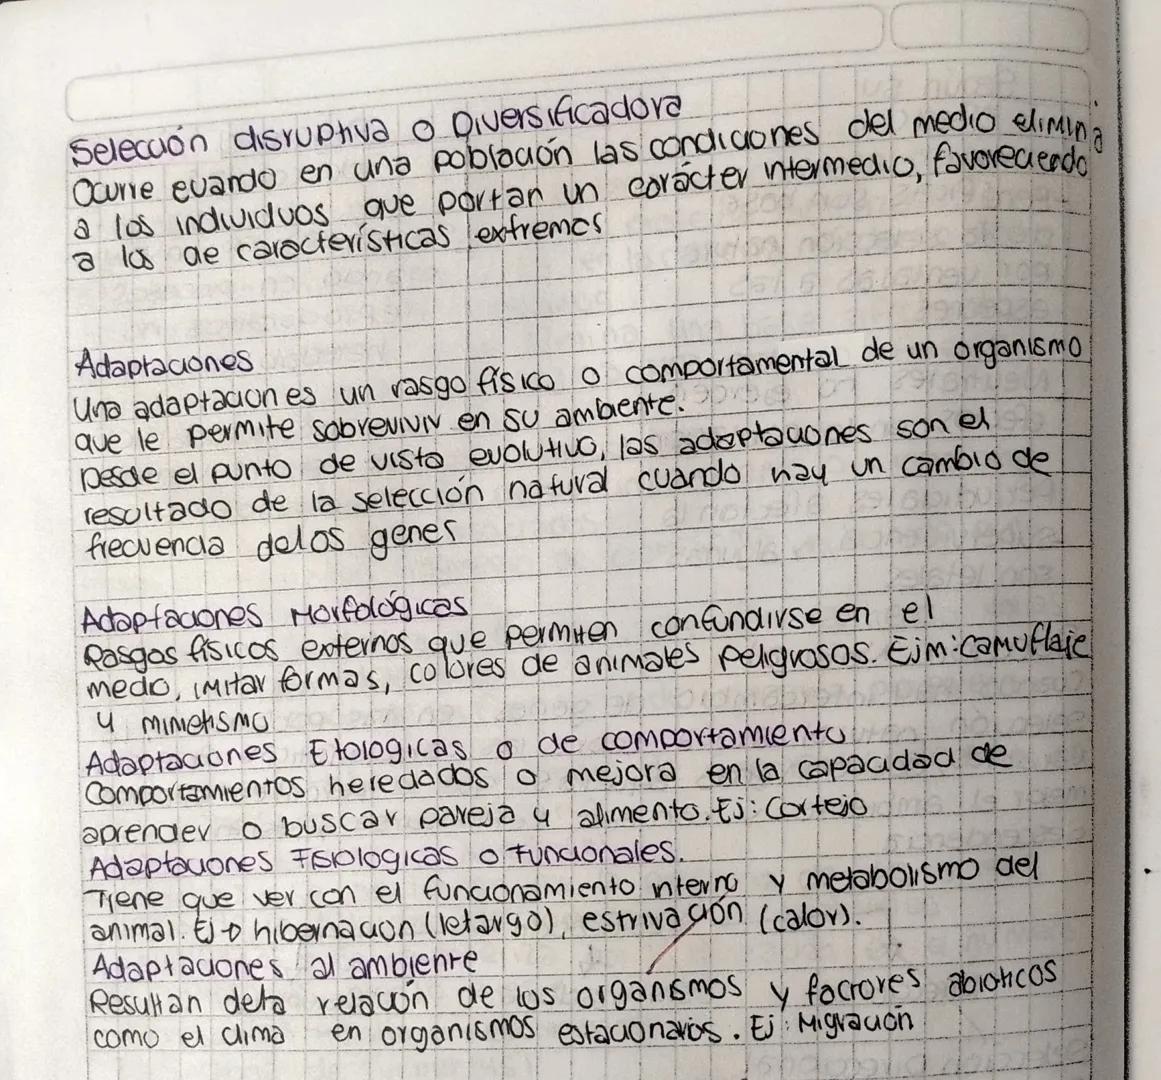 Selección disruptiva o Diversificadora
Ocurre cuando en una población las condiciones del medio elimina
a los individuos que portan un carácter intermedio, favoreciendo
a los de características extremas
Adaptaciones
Una adaptación es un rasgo físico o comportamental de un organismo
que le permite sobrevivir en su ambiente.
Desde el punto de vista evolutivo, las adaptaciones son el
resultado de la selección natural cuando hay un cambio de
frecuencia delos genes
Adaptaciones Morfológicas
Rasgos físicos externos que permiten confundirse en el
medio, imitar formas, colores de animales peligrosos. Ejm: camuflaje
y mimetismo
Adaptaciones Etologicas o de comportamiento
Comportamientos heredados o mejora en la capacidad de
aprender o buscar pareja y alimento. Ej: Cortejo
Adaptaciones Fisiologicas o funcionales.
Tiene que ver con el funcionamiento interno y metabolismo del
animal. Ej → hibernacion (letargo), estrivación (calor).
Adaptaciones al ambiente
Resultan dela relación de los organismos y factores abioticos
como el clima en organismos estacionarios. Ej: Migración